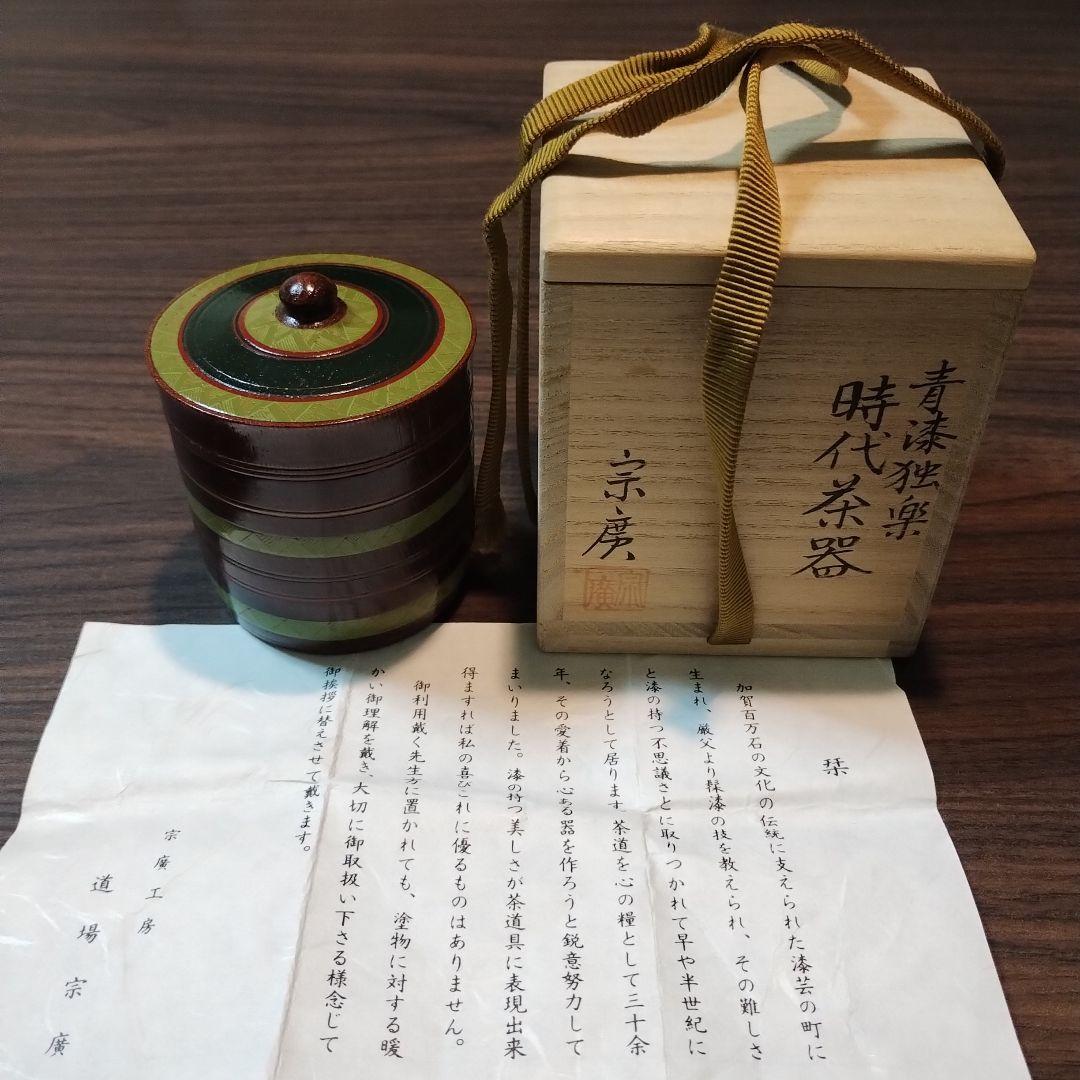 青漆独楽
時代茶器
宗廣
宗廣
栞
加賀百万石の文化の伝統に支えられた漆芸の町に
生まれ、厳父より髹漆の技を教えられ、その難しさ
と漆の持つ不思議さとに取りつかれて早や半世紀に
なろうとして居ります。茶道を心の糧として三十余
年、その愛着から心ある器を作ろうと鋭意努力して
まいりました。漆の持つ美しさが茶道具に表現出来
得ますれば私の喜びこれに優るものはありません。
御利用戴く先生方に置かれても、塗物に対する暖
かい御理解を戴き、大切に御取扱い下さる様念じて
御挨拶に替えさせて戴きます。
宗廣工房
道場宗廣